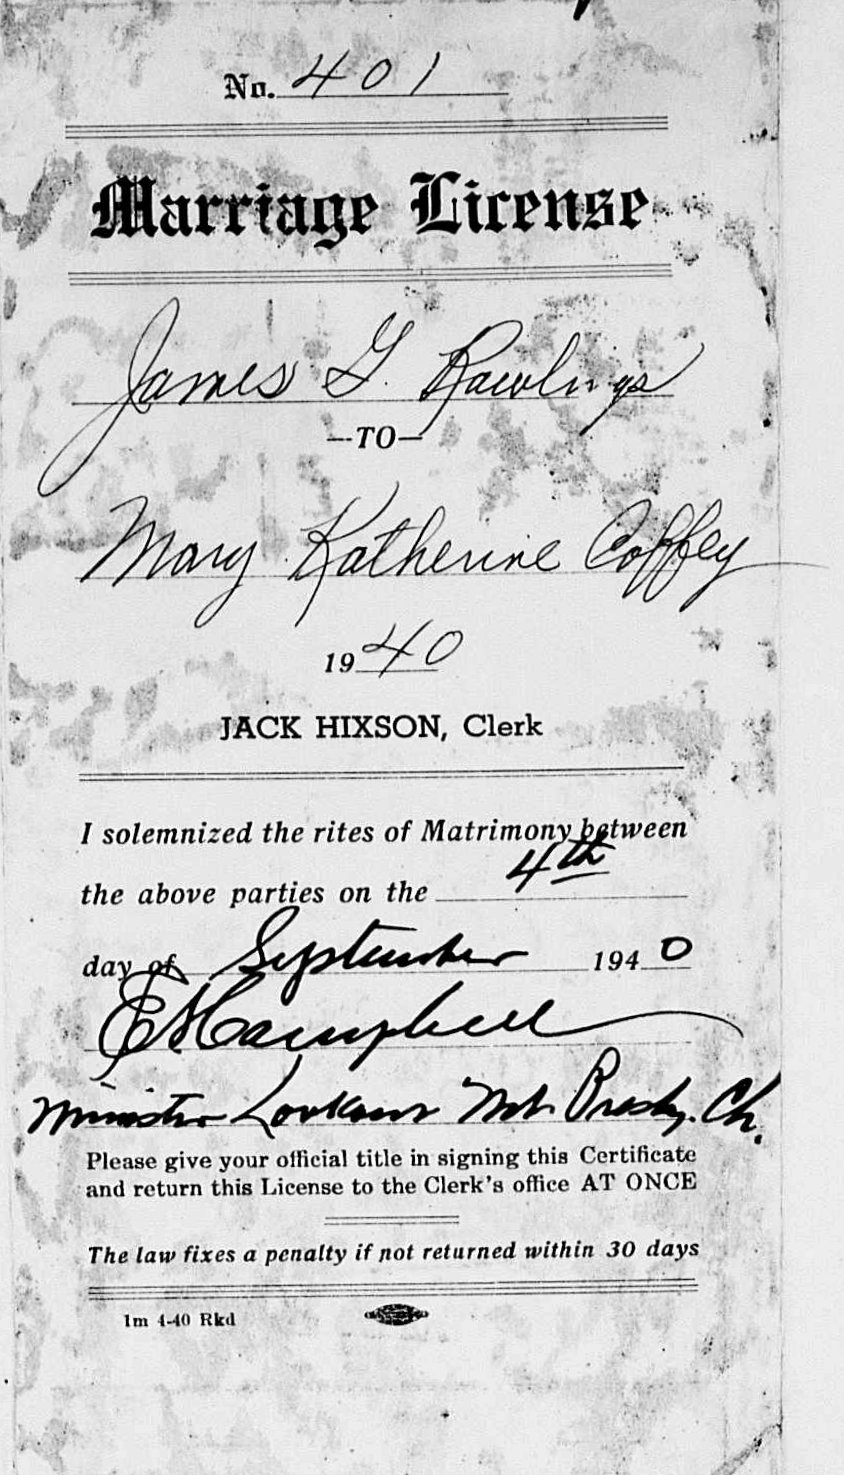 No. 401
Marriage License
James G. Rawlings
—TO—
Mary Katherine Coffey
1940
JACK HIXSON, Clerk
I solemnized the rites of Matrimony between
the above parties on the 4th
day of September 1940
E H Campbell
Minister Lookout Mt. Presby. Ch.
Please give your official title in signing this Certificate
and return this License to the Clerk's office AT ONCE
The law fixes a penalty if not returned within 30 days
1m 4-40 Rkd